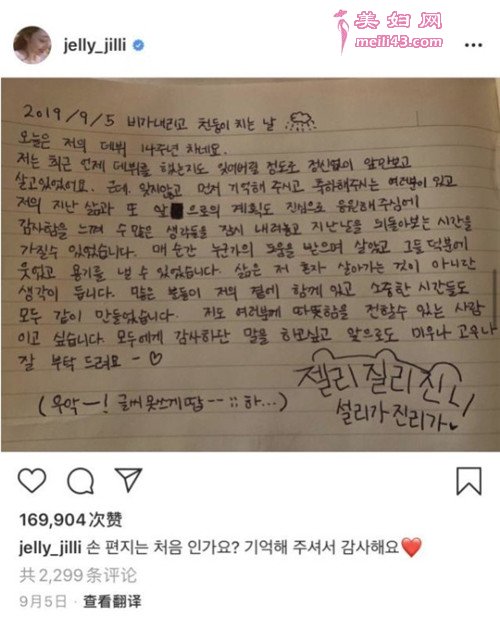 美妇网
meili43.com
jelly_jilli
2019/9/5 비가내리고 천둥이 치는 날
오늘은 저의 데뷔 14주년 차네요.
저는 최근 언제 데뷔를 했는지도 잊어버릴 정도로 정신없이 앞만보고
살고있었어요. 근데, 잊지않고 먼저 기억해 주시고 축하해주시는 여러분이 있고
저의 지난 삶과 또 앞으로의 계획도 진심으로 응원해주심에
감사함을 느껴 수많은 생각들을 잠시 내려놓고 지난날을 뒤돌아보는 시간을
가질수 있었습니다. 매 순간 누군가의 도움을 받으며 살았고 그들 덕분에
웃었고 용기를 낼 수 있었습니다. 삶은 저 혼자 살아가는 것이 아니란
생각이 듭니다. 많은 분들이 저의 곁에 함께 있고 소중한 시간들도
모두 같이 만들었습니다. 저도 여러분께 따뜻함을 전할수 있는 사람
이고 싶습니다. 모두에게 감사하단 말을 하고싶고 앞으로도 미우나 고우나
잘 부탁 드려요 - ♡
젤리질리진니
설리가 진리가
(우악-! 글씨 못쓰게땁 -- ;; 하...)
169,904次赞
jelly_jilli 손 편지는 처음 인가요? 기억해 주셔서 감사해요❤️
共2,299条评论
9月5日 · 查看翻译